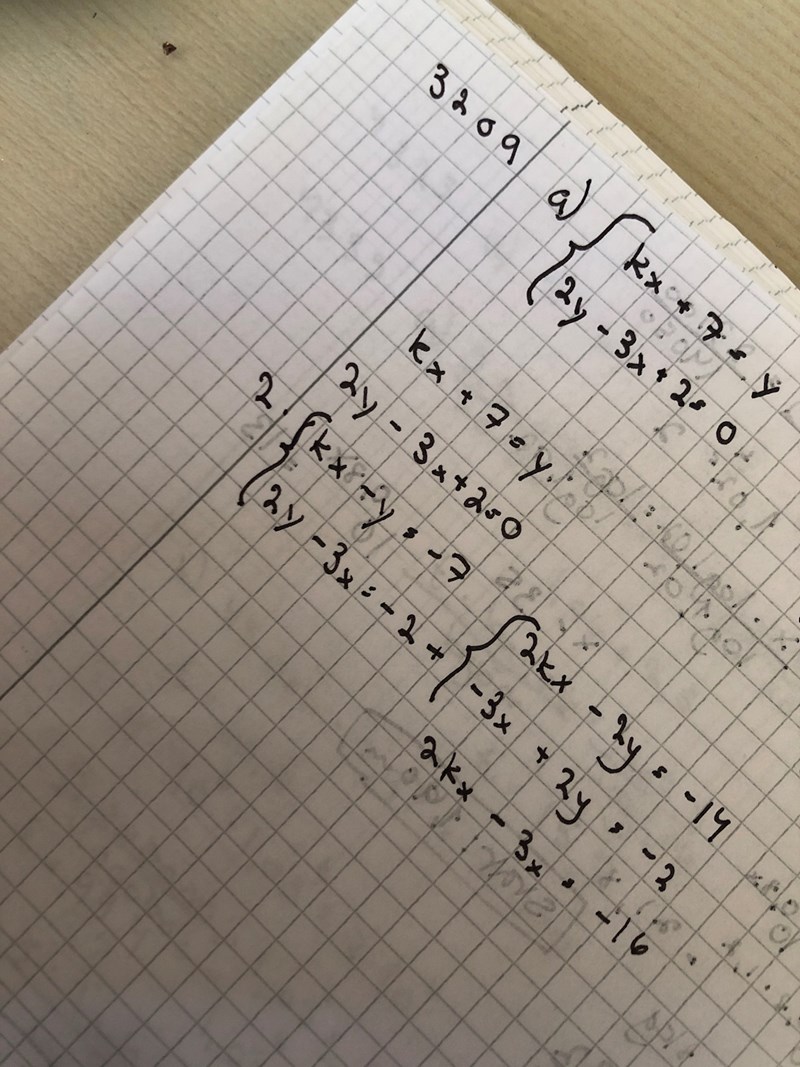 3209
a) { kx + 7 = y
2y - 3x + 2 = 0
kx + 7 = y
2y - 3x + 2 = 0
2. { kx - y = -7
2y - 3x = -2
+ { 2kx - 2y = -14
-3x + 2y = -2
2kx - 3x = -16